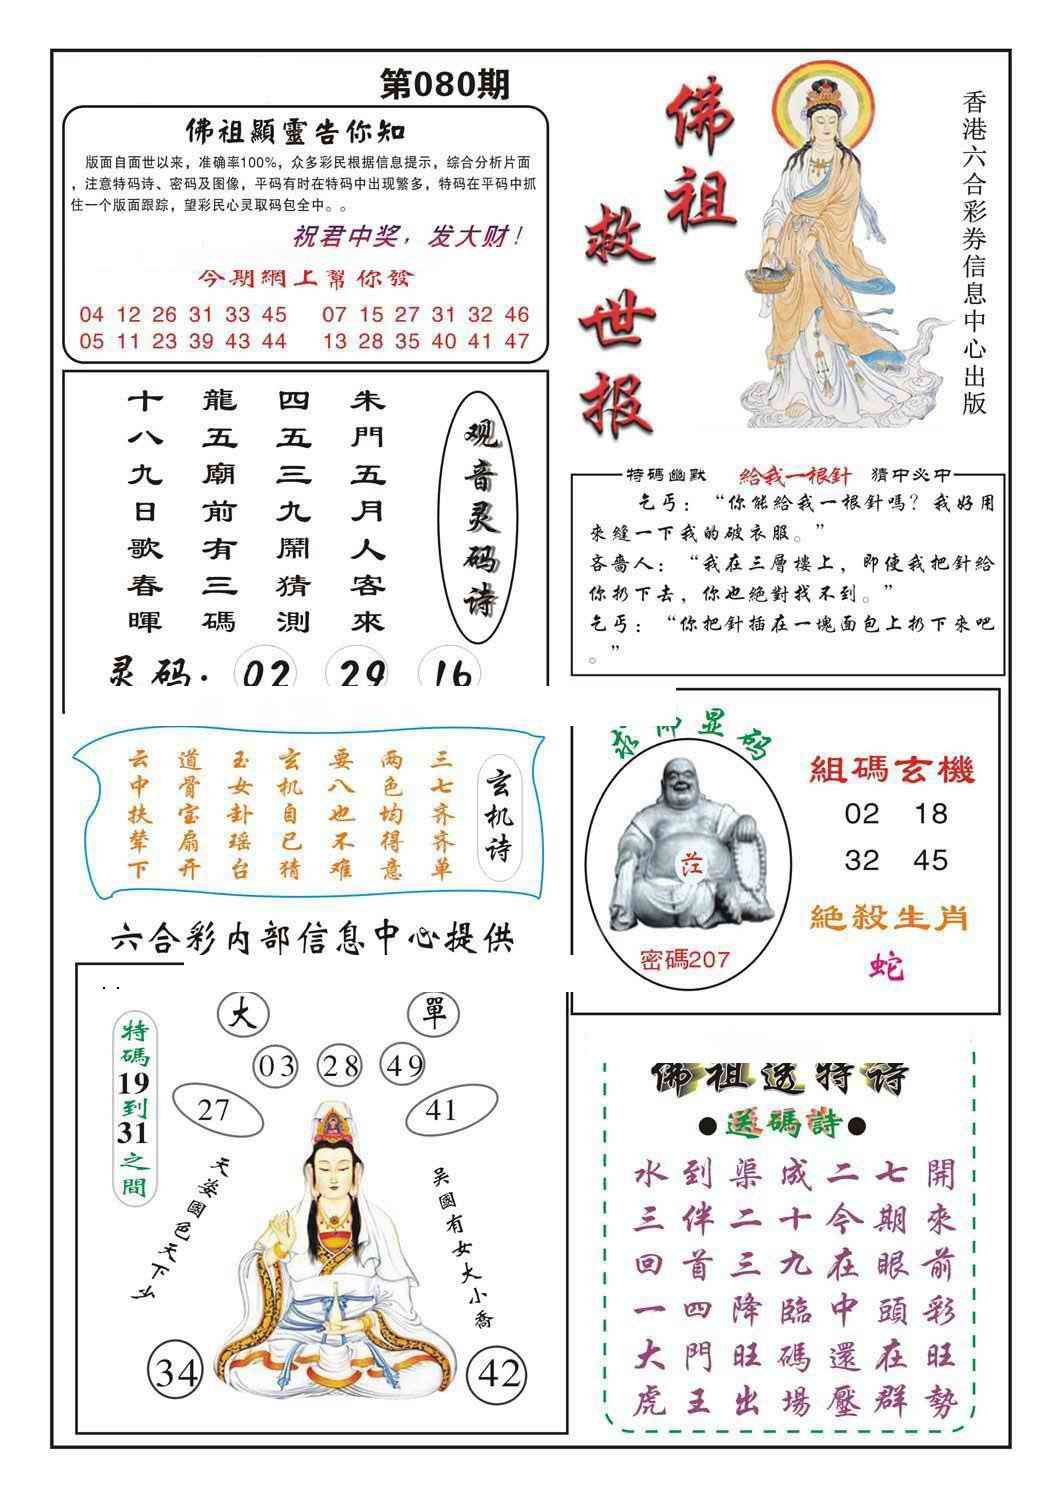 第080期
佛祖顯靈告你知
版面自面世以来，准确率100%，众多彩民根据信息提示，综合分析片面
，注意特码诗、密码及图像，平码有时在特码中出现繁多，特码在平码中抓
住一个版面跟踪，望彩民心灵取码包全中。。
祝君中奖，发大财！
今期網上幫你發
04 12 26 31 33 45 07 15 27 31 32 46
05 11 23 39 43 44 13 28 35 40 41 47
佛祖
救世报
香港六合彩券信息中心出版
观音灵码诗
朱門五月人客來
四五三九鬧猜測
龍五廟前有三碼
十八九日歌春暉
灵码： 02 29 16
特碼幽默 給我一根針 猜中必中
乞丐：“你能給我一根針嗎？我好用
來縫一下我的破衣服。”
吝嗇人：“我在三層樓上，即使我把針給
你扔下去，你也絕對找不到。”
乞丐：“你把針插在一塊面包上扔下來吧
。”
玄机诗
三七齐齐单
两色均得意
要八也不难
玄机自已猜
玉女卦瑶台
道骨宝扇开
云中扶辇下
六合彩内部信息中心提供
显码
密碼207
組碼玄機
02 18
32 45
絕殺生肖
蛇
特碼19到31之間
大 單
03 28 49
27 41
天姿國色天下么
吴國有女大小喬
34 42
佛祖透特诗
●送碼詩●
水到渠成二七開
三伴二十今期來
回首三九在眼前
一四降臨中頭彩
大門旺碼還在旺
虎王出場壓群勢